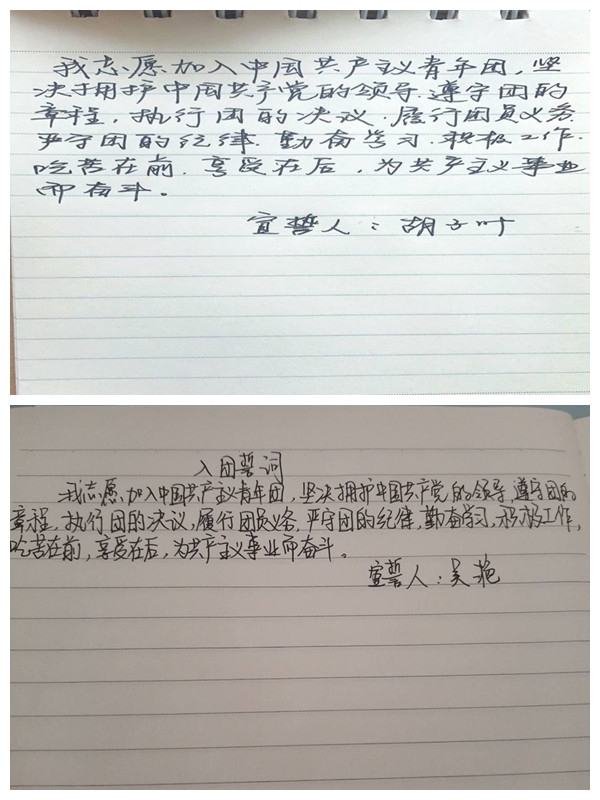 我志愿加入中国共产主义青年团，坚
决拥护中国共产党的领导，遵守团的
章程，执行团的决议，履行团员义务，
严守团的纪律，勤奋学习，积极工作，
吃苦在前，享受在后，为共产主义事业
而奋斗。
宣誓人：胡子叶
入团誓词
我志愿加入中国共产主义青年团，坚决拥护中国共产党的领导，遵守团的
章程，执行团的决议，履行团员义务，严守团的纪律，勤奋学习，积极工作，
吃苦在前，享受在后，为共产主义事业而奋斗。
宣誓人：吴艳